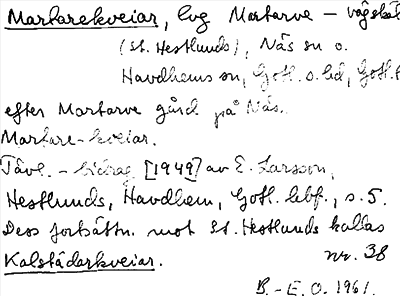 Martarekveiar, lvg Martarve – vägskäl
(St. Hestlunds), Näs sn o.
Havdhems sn, Gotl. s. hd, Gotl.
efter Martarve gård på Näs.
Martare-kveiar.
Tävl. – bidrag [1949] av E. Larsson,
Hestlunds, Havdhem, Gotl. , s. 5.
Dess fortsättn. mot St. Hestlunds kallas
Kalstädarkveiar. nr. 38
B.-E. O. 1961.